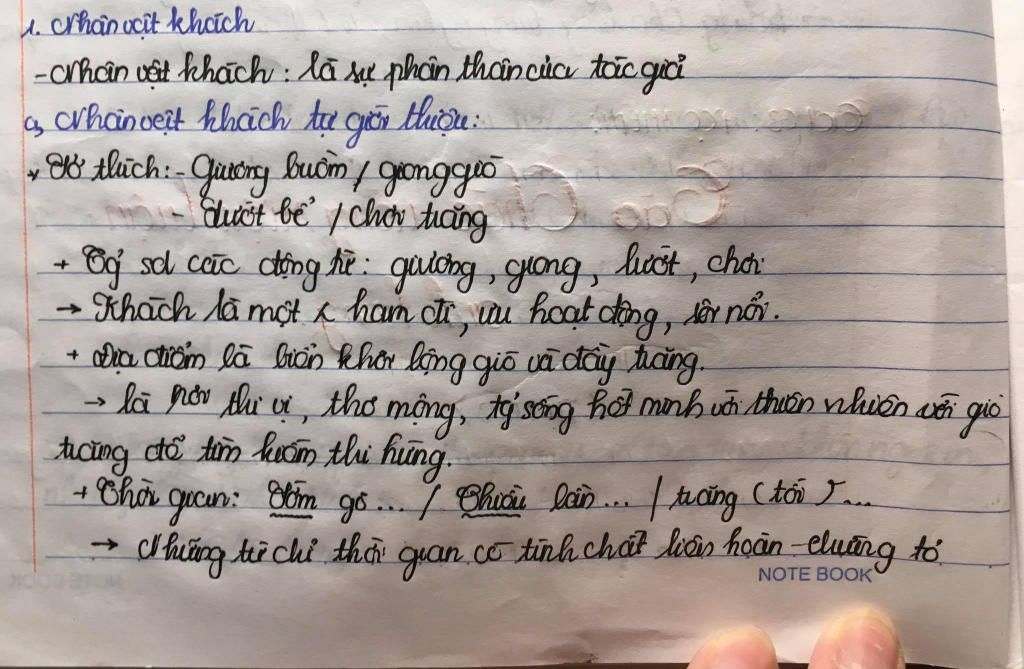 1. Nhân vật khách
- Nhân vật khách : là sự phân thân của tác giả
a, Nhân vật khách tự giới thiệu:
* Sở thích : - Giương buồm / giong gió
- Lướt bể / chơi trăng
+ Tg' sd các động từ : giương , giong , lướt , chơi
→ Khách là một ham đi, ưu hoạt động, sôi nổi.
+ Địa điểm là biển khơi lộng gió và đầy trăng.
→ là nơi thi vị , thơ mộng, tg' sống hết mình với thiên nhiên với gió
trăng để tìm kiếm thi hứng.
+ Thời gian: Sớm gõ ... / Chiều lần ... / trăng (tối) ...
→ Những từ chỉ thời gian có tính chất liên hoàn - chứng tỏ
NOTE BOOK